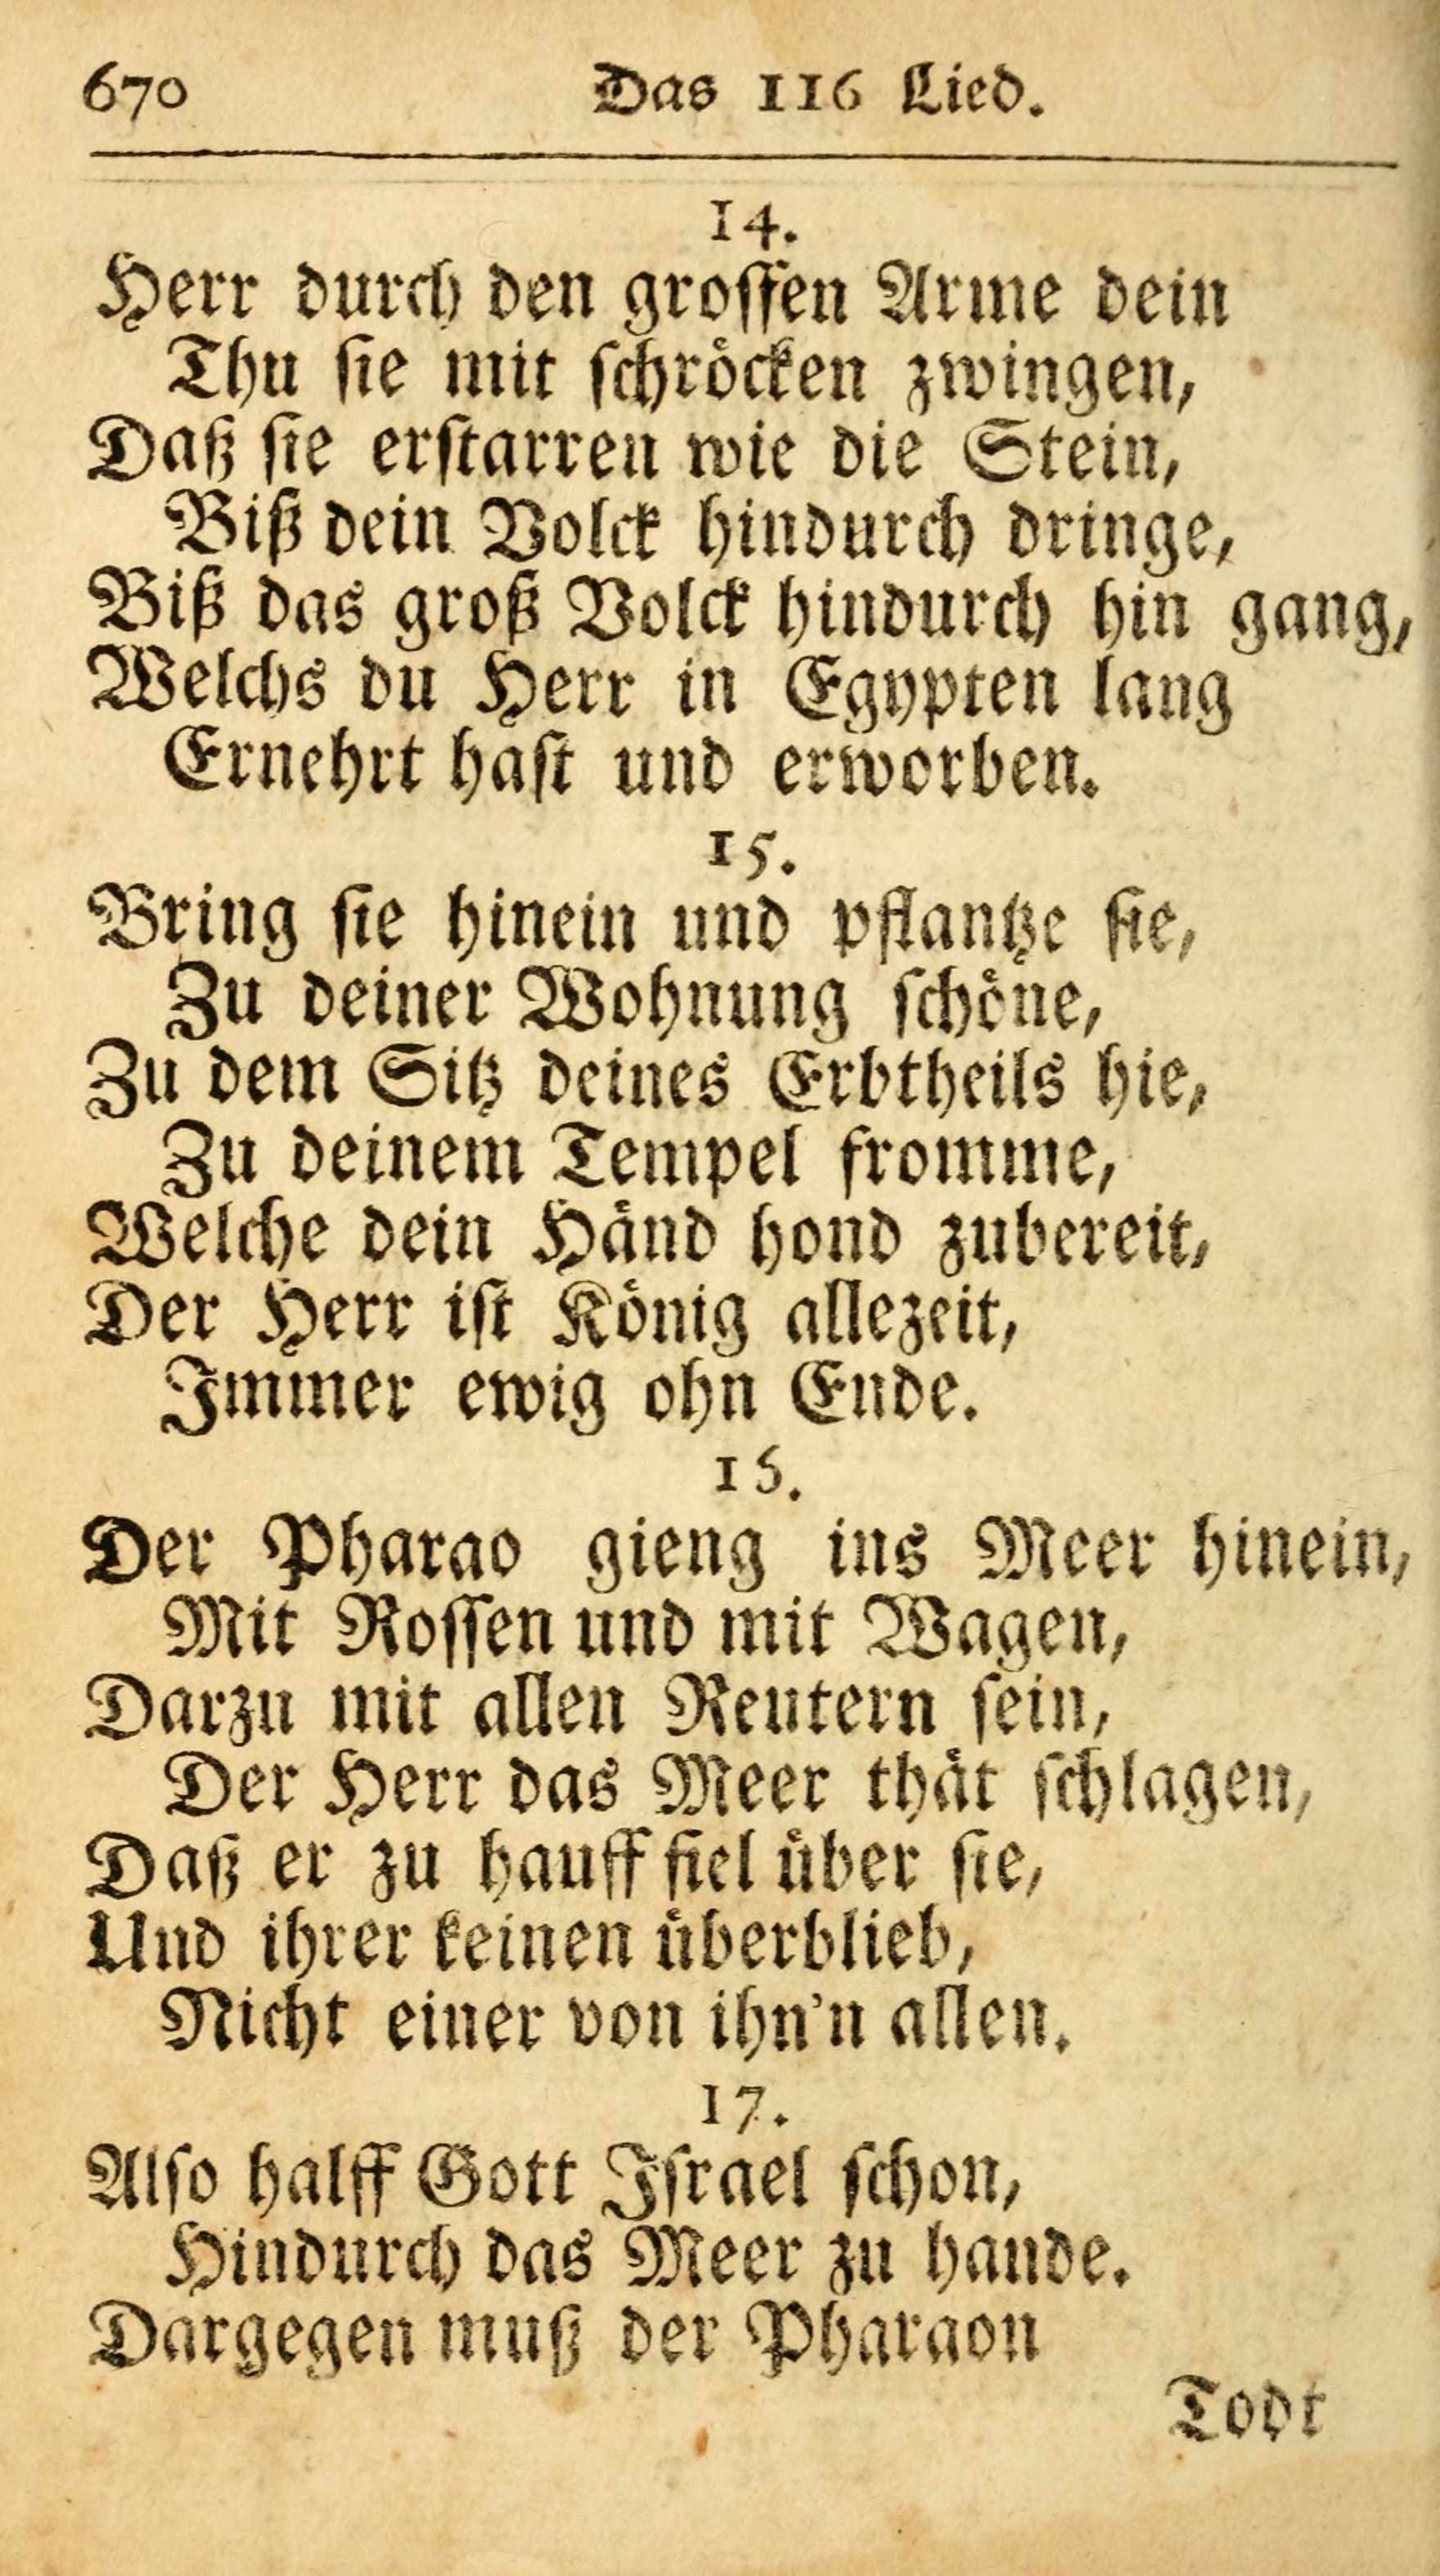 670 Das 116 Lied.
14.
Herr durch den grossen Arme dein
Thu sie mit schröcken zwingen,
Daß sie erstarren wie die Stein,
Biß dein Volck hindurch dringe,
Biß das groß Volck hindurch hin gang,
Welchs du Herr in Egypten lang
Ernehrt hast und erworben.
15.
Bring sie hinein und pflantze sie,
Zu deiner Wohnung schöne,
Zu dem Sitz deines Erbtheils hie,
Zu deinem Tempel fromme,
Welche dein Händ hond zubereit,
Der Herr ist König allezeit,
Immer ewig ohn Ende.
16.
Der Pharao gieng ins Meer hinein,
Mit Rossen und mit Wagen,
Darzu mit allen Reutern sein,
Der Herr das Meer thät schlagen,
Daß er zu hauff fiel über sie,
Und ihrer keinen überblieb,
Nicht einer von ihn'n allen.
17.
Also halff Gott Israel schon,
Hindurch das Meer zu hande.
Dargegen muß der Pharaon
Todt